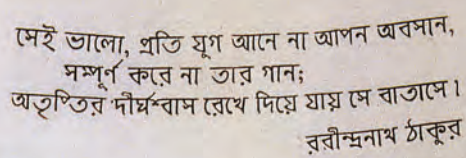 সেই ভালো, প্রতি যুগ আনে না আপন অবসান,
সম্পূর্ণ করে না তার গান;
অতৃপ্তির দীর্ঘশ্বাস রেখে দিয়ে যায় সে বাতাসে।
রবীন্দ্রনাথ ঠাকুর